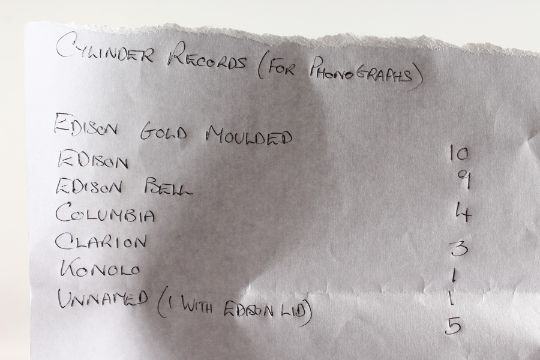 CYLINDER RECORDS (FOR PHONOGRAPHS)
EDISON GOLD MOULDED 10
EDISON 9
EDISON BELL 4
COLUMBIA 3
CLARION 1
KONOLO 1
UNNAMED (1 WITH EDISON LID) 5